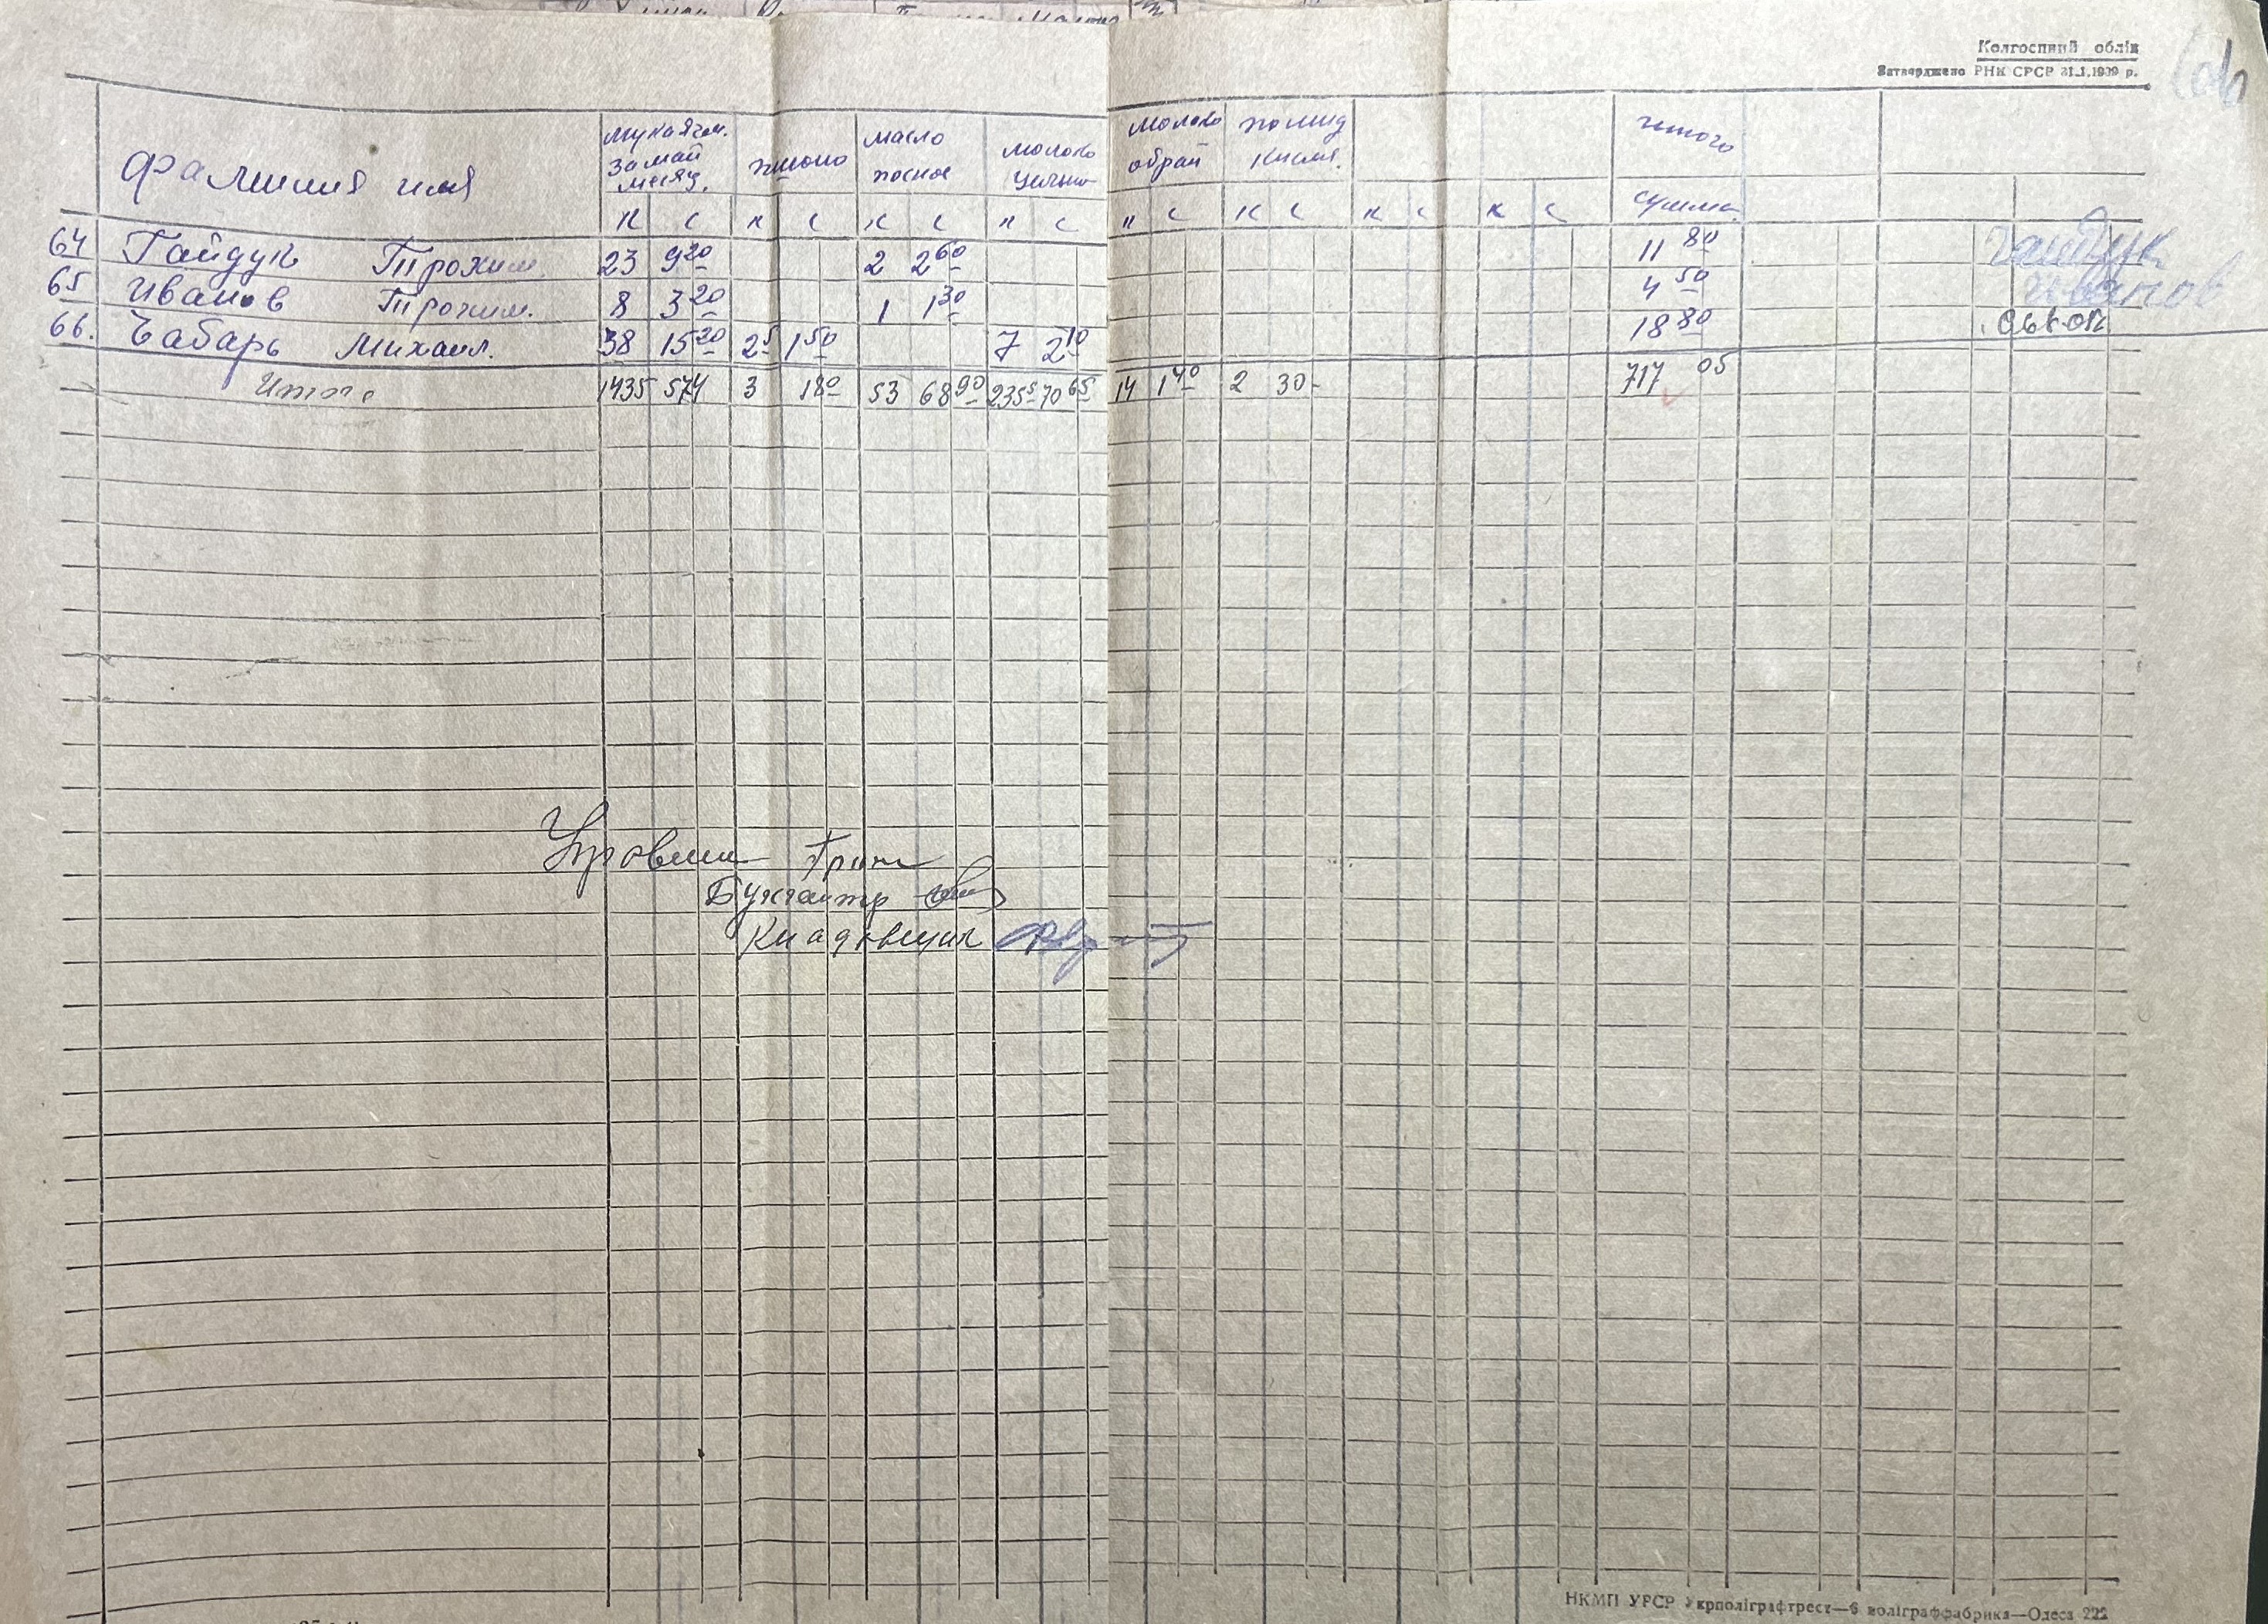 Колгоспний облік
Затверджено РНК СРСР 31.I.1939 р.
Фамилия имя мука ячм. за май месяц. пшоно масло посное молоко цельно молоко обрай помид кисля. итого
к с к с к с к с к с к с к с к с сумма
64 Гайдук Трохим 23 9 20 2 2 60 11 80 Гайдук
65 Иванов Трохим. 8 3 20 1 1 30 4 50 Иванов
66. Чабарь Михаил. 38 15 20 2 5 1 50 7 2 10 18 80
Итого 1435 574 3 1 80 53 68 90 235 5 70 65 14 1 40 2 30- 717 05
Бухгалтр
Кладовщик
НКМП УРСР Укрполіграфтрест—6 поліграффабрика—Одеса 222